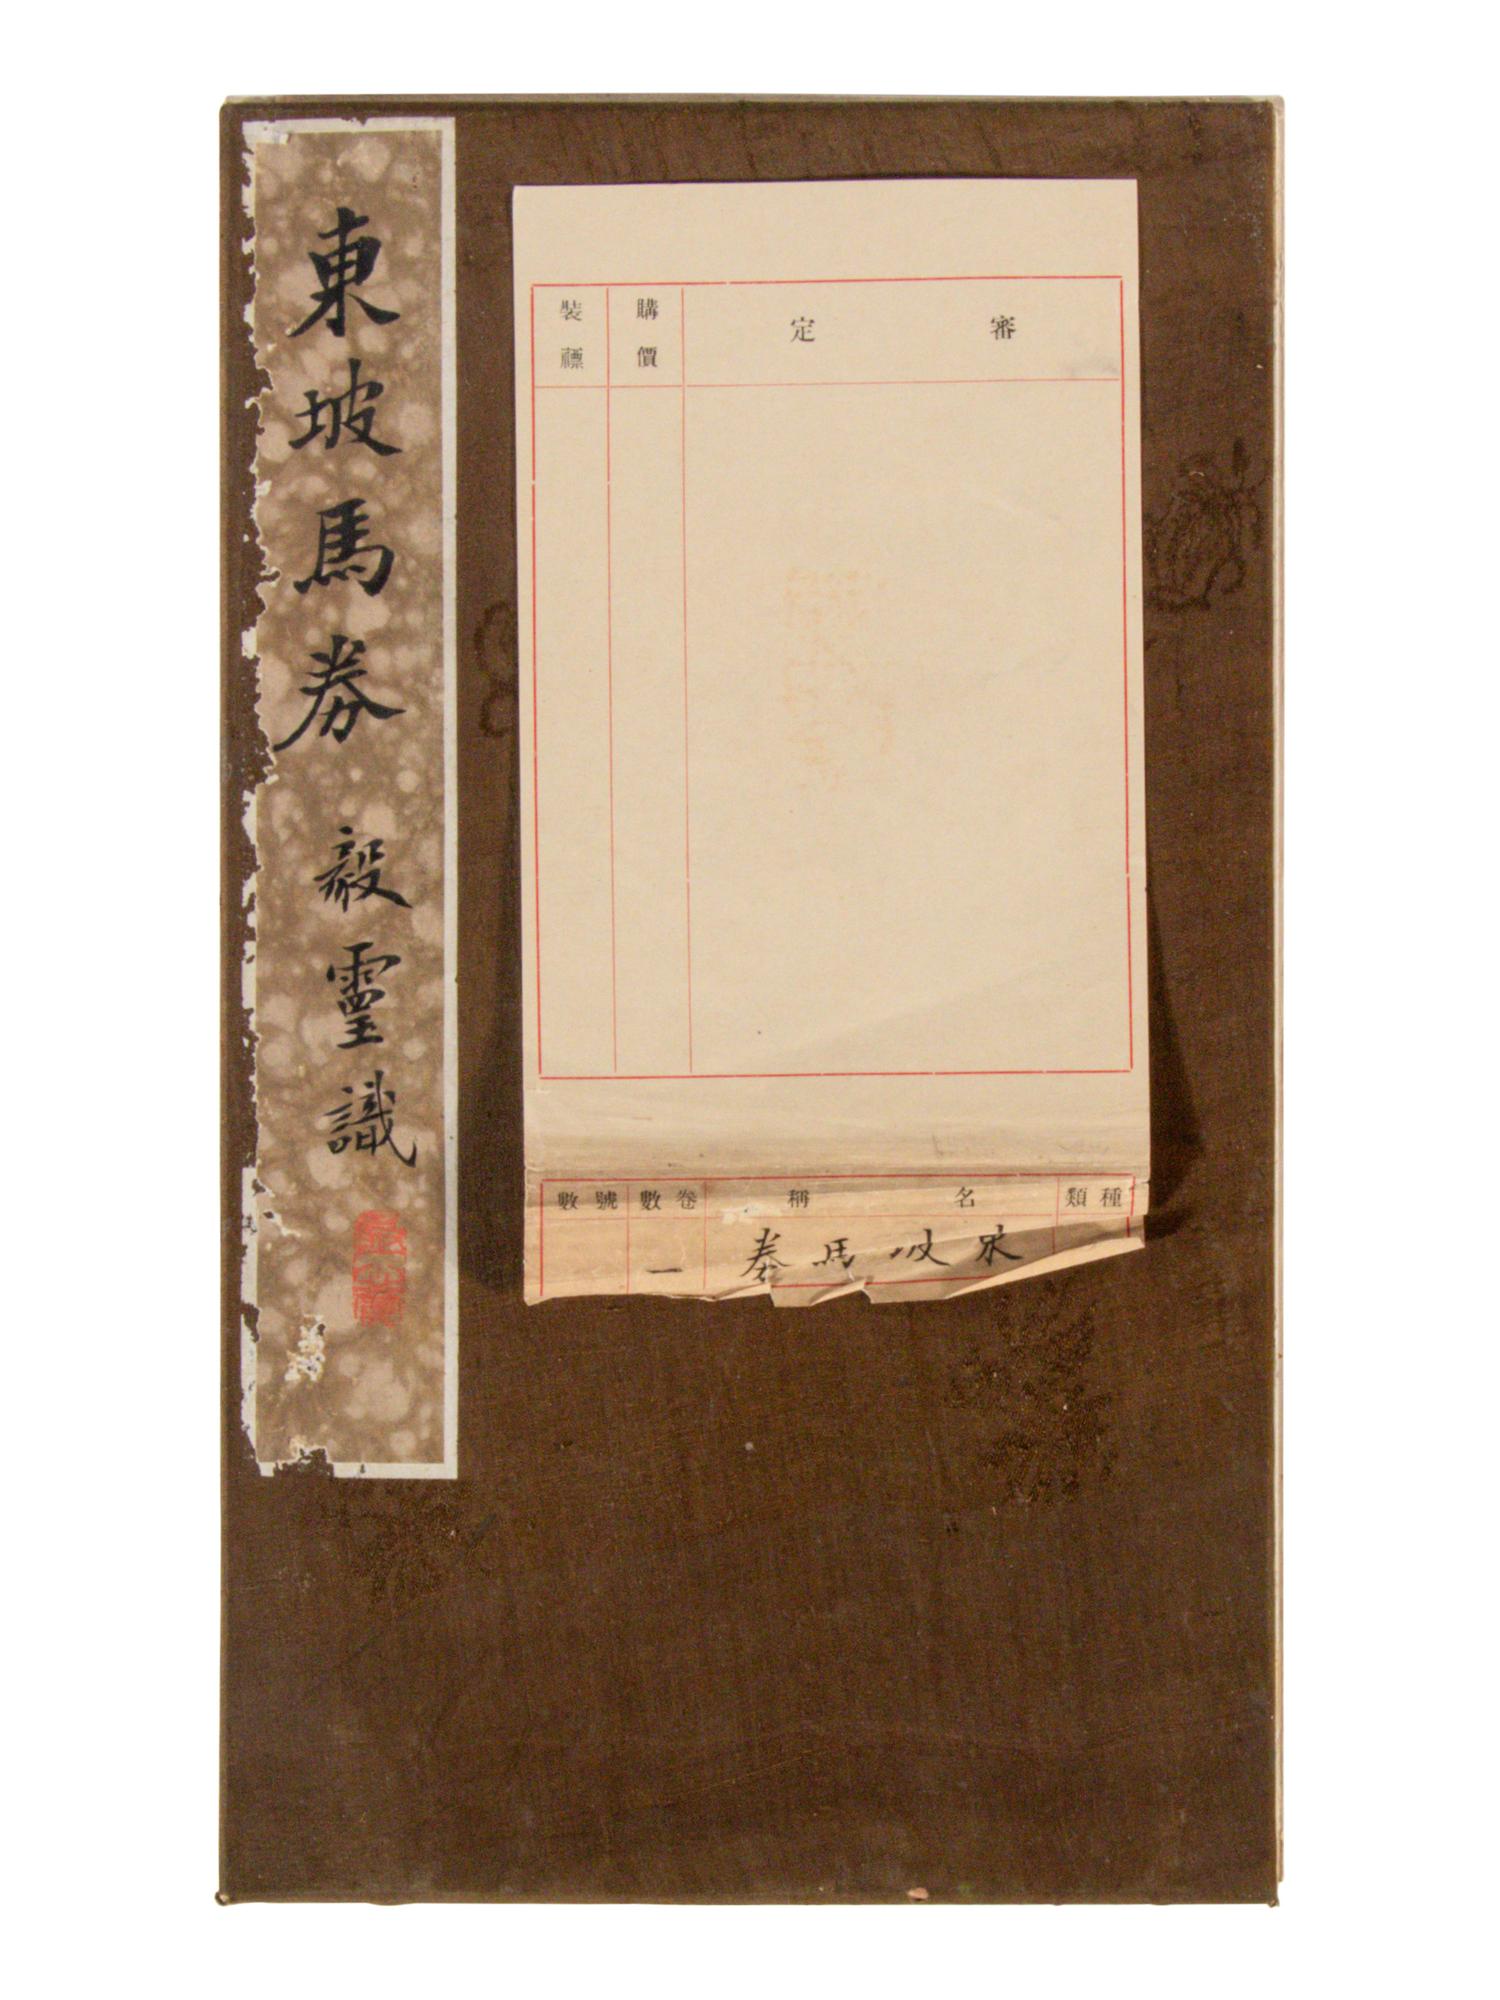 東坡馬券
毅靈識
審定
購價
裝褾
種類
名稱
卷數
號數
東坡馬券
一